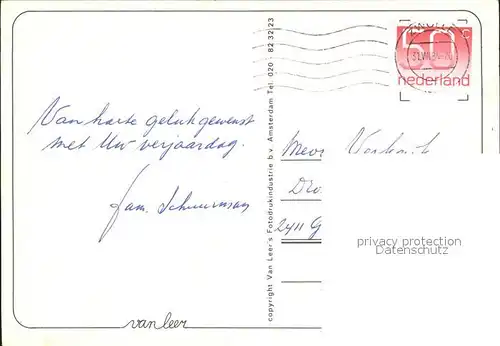 50
nederland
ZWOLLE
Van harte gelukgewenst
met Uw verjaardag.
fam. Schuurman
van leer
copyright Van Leer's Fotodrukindustrie b.v. Amsterdam Tel. 020 - 82 32 23
Mevr
Dro
2411 G
privacy protection
Datenschutz